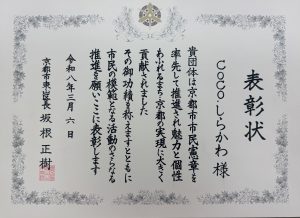 表彰状
COCO・しらかわ 様
貴団体は京都市市民憲章を
率先して推進され魅力と個性
あふれるまち京都の実現に大きく
貢献されました
その御功績を称えますとともに
市民の模範となる活動のさらなる
推進を願いここに表彰します
令和八年三月六日
京都市東山区長 坂根正樹